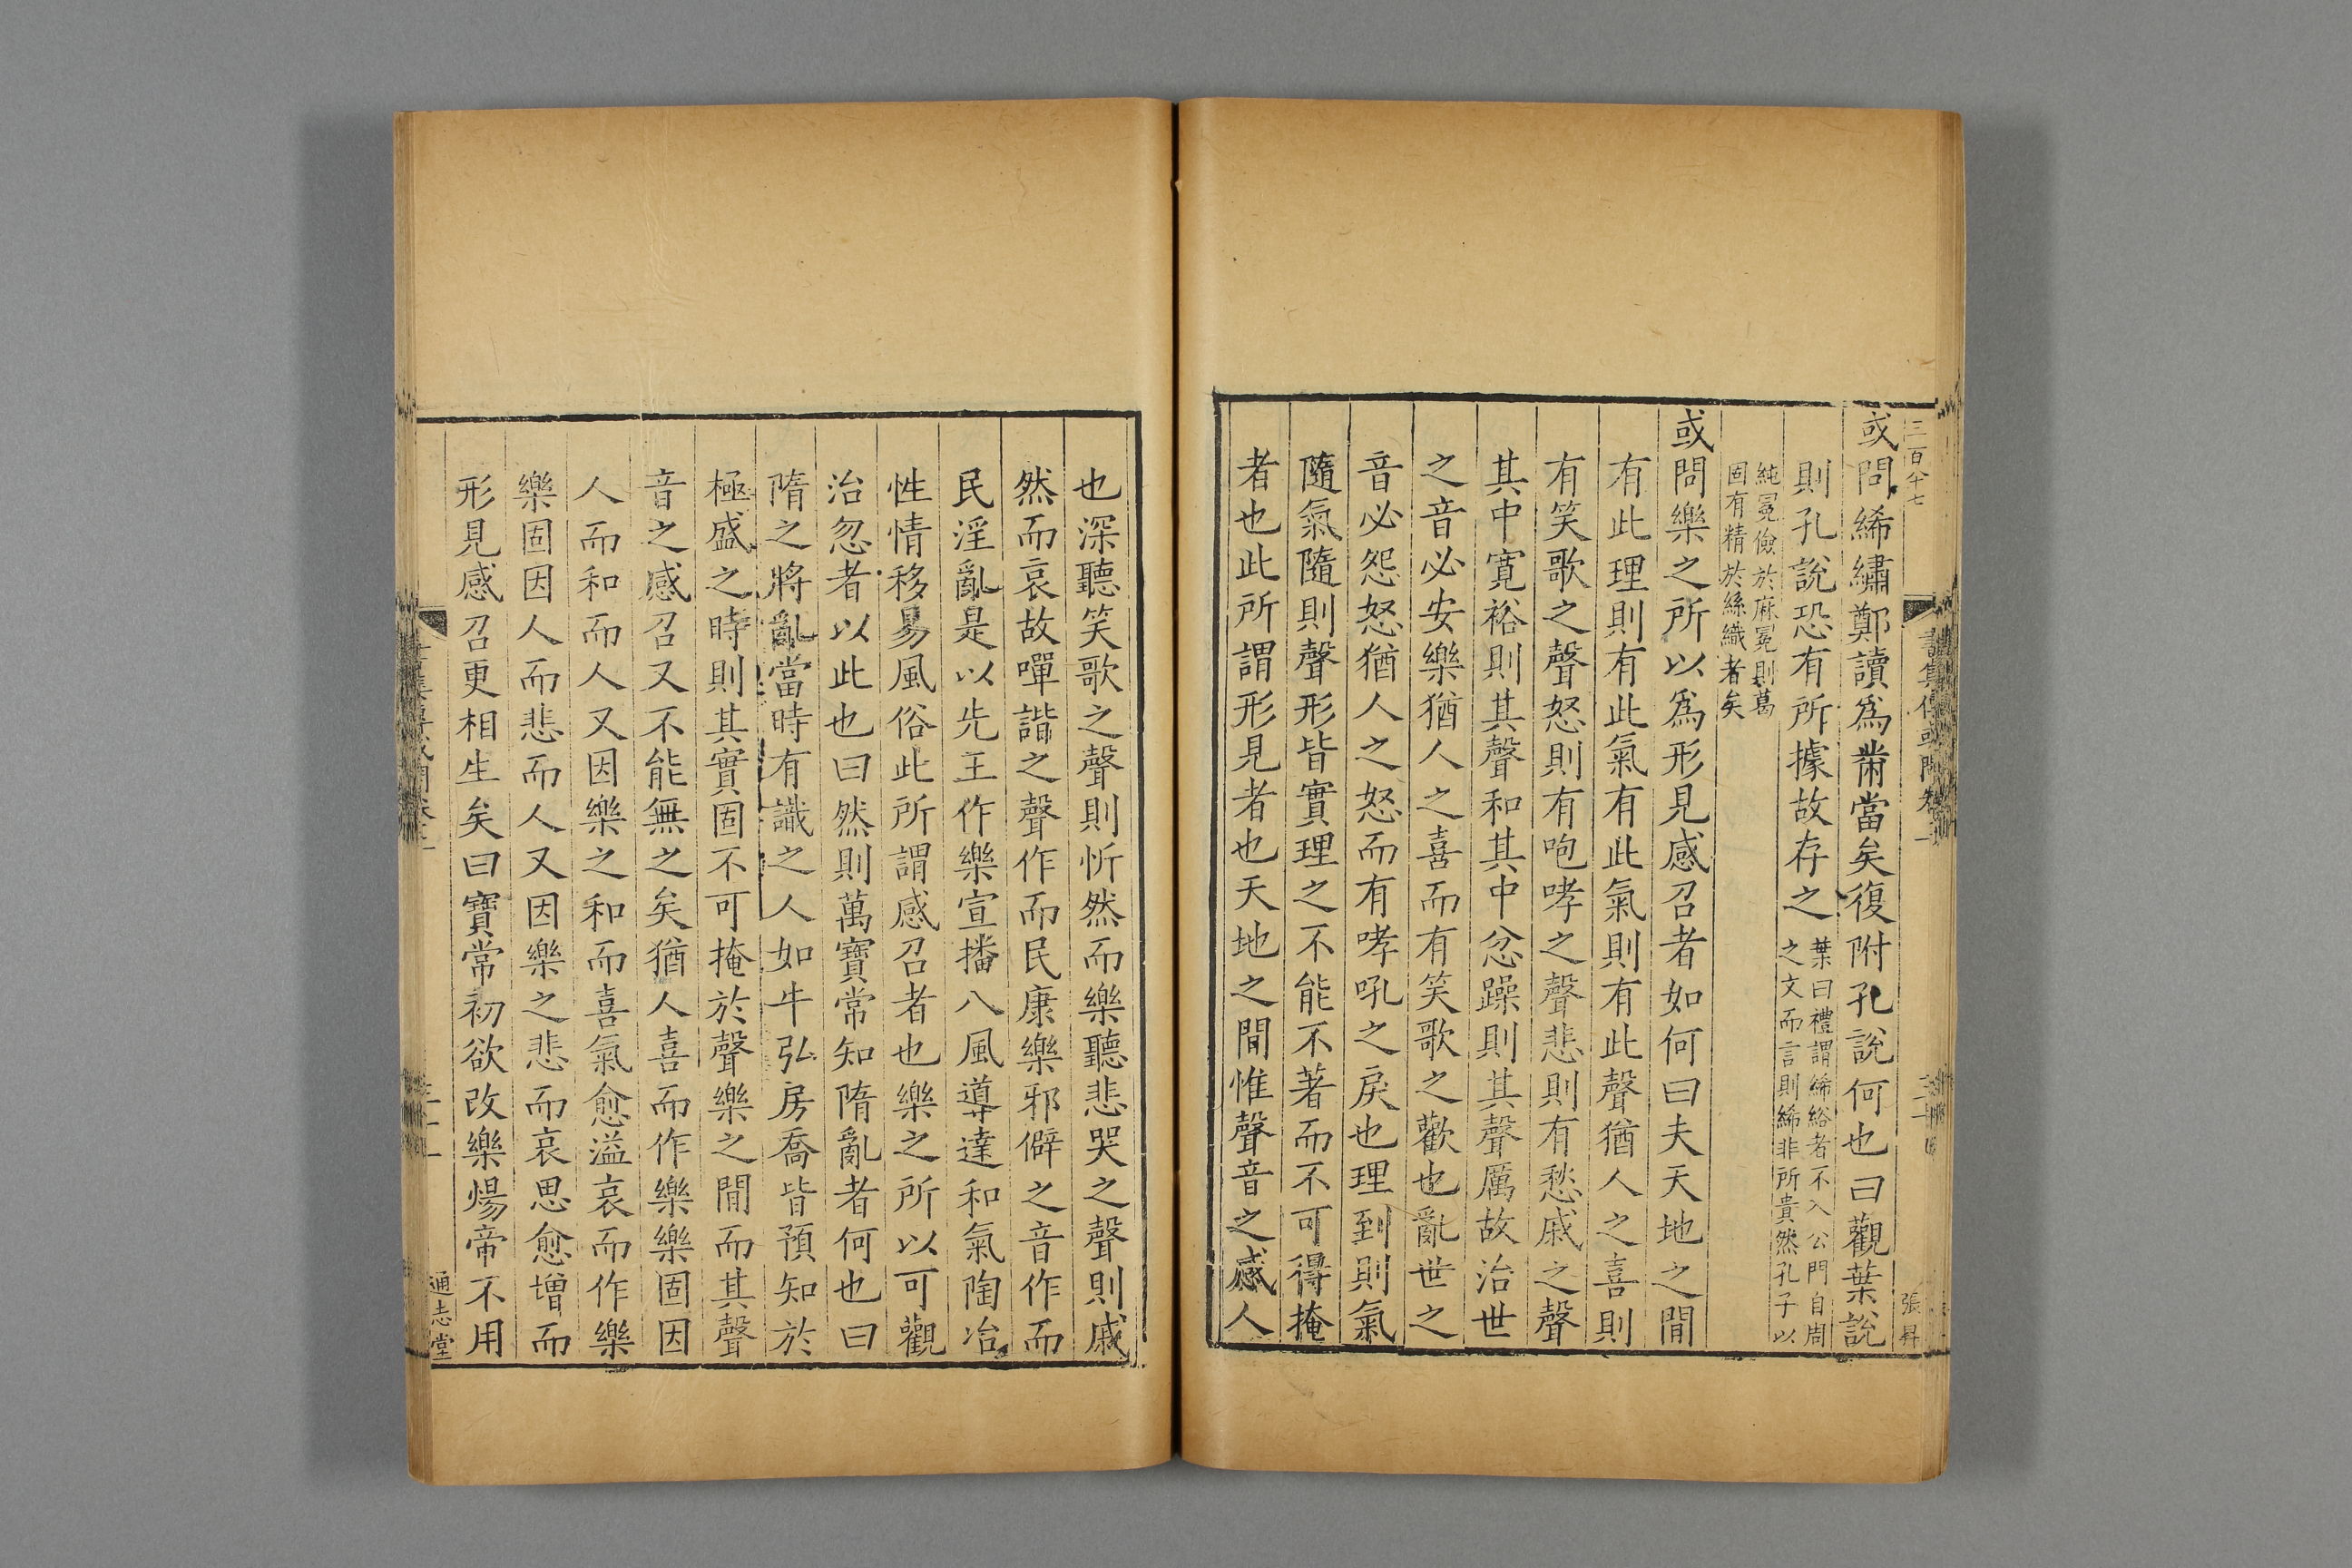 三百八十七
或問絺繡鄭讀爲黹當矣復附孔說何也曰觀葉說
則孔說恐有所據故存之葉曰禮謂絺綌者不入公門自周
之文而言則絺非所貴然孔子以
純冕儉於麻冕則葛
固有精於絲織者矣
或問樂之所以爲形見感召者如何曰夫天地之間
有此理則有此氣有此氣則有此聲猶人之喜則
有笑歌之聲怒則有咆哮之聲悲則有愁戚之聲
其中寛裕則其聲和其中忿躁則其聲厲故治世
之音必安樂猶人之喜而有笑歌之歡也亂世之
音必怨怒猶人之怒而有哮吼之戾也理到則氣
隨氣隨則聲形皆實理之不能不著而不可得掩
者也此所謂形見者也天地之間惟聲音之感人
書集傳或問卷上
張昇
也深聽笑歌之聲則忻然而樂聽悲哭之聲則戚
然而哀故嘽諧之聲作而民康樂邪僻之音作而
民淫亂是以先王作樂宣播八風導達和氣陶冶
性情移易風俗此所謂感召者也樂之所以可觀
治忽者以此也曰然則萬寶常知隋亂者何也曰
隋之將亂當時有識之人如牛弘房喬皆預知於
極盛之時則其實固不可掩於聲樂之間而其聲
音之感召又不能無之矣猶人喜而作樂樂固因
人而和而人又因樂之和而喜氣愈溢哀而作樂
樂固因人而悲而人又因樂之悲而哀思愈增而
形見感召更相生矣曰寶常初欲改樂煬帝不用
通志堂